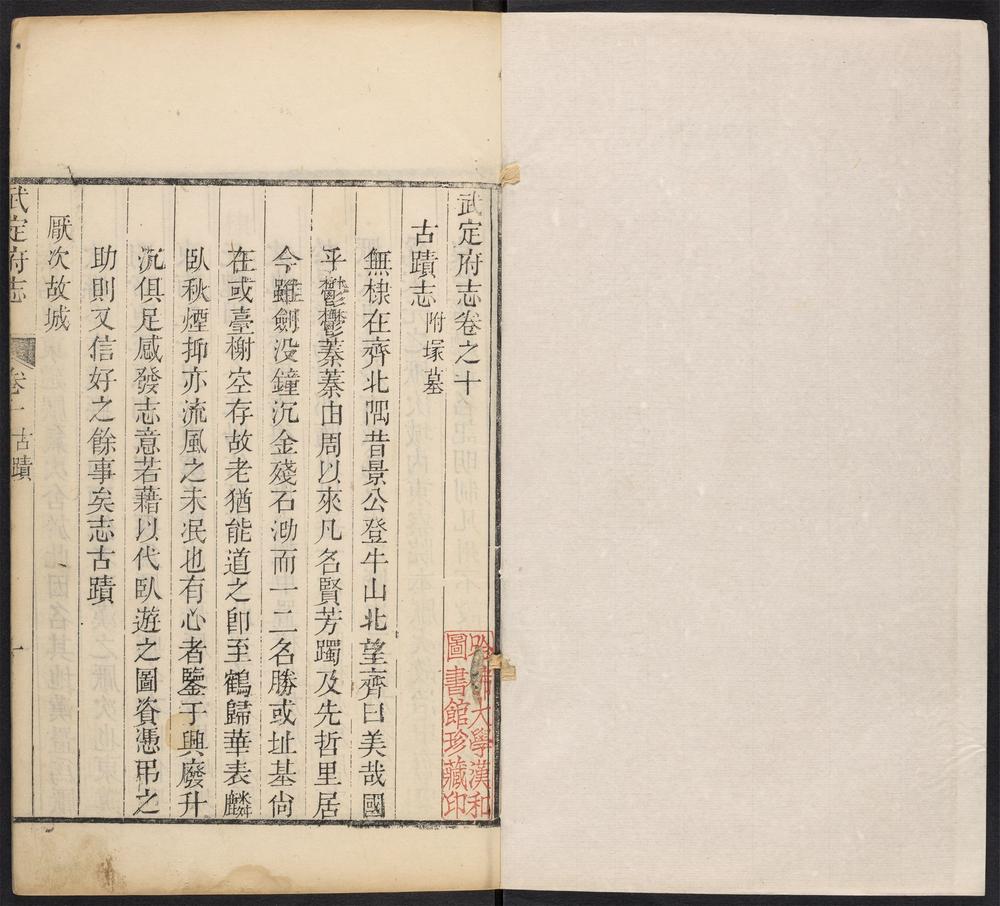 武定府志卷之十
古蹟志附塚墓
無棣在齊北隅昔景公登牛山北望齊曰美哉國
乎鬱鬱蓁蓁由周以來凡名賢芳躅及先哲里居
今雖劍没鐘沉金殘石泐而一二名勝或址基尙
在或臺榭空存故老猶能道之卽至鶴歸華表麟
臥秋煙抑亦流風之未泯也有心者鑒于興廢升
沉俱足感發志意若藉以代臥遊之圖資憑弔之
助則又信好之餘事矣志古蹟
厭次故城
武定府志
卷十
古蹟
一
哈佛大學漢和
圖書館珍藏印